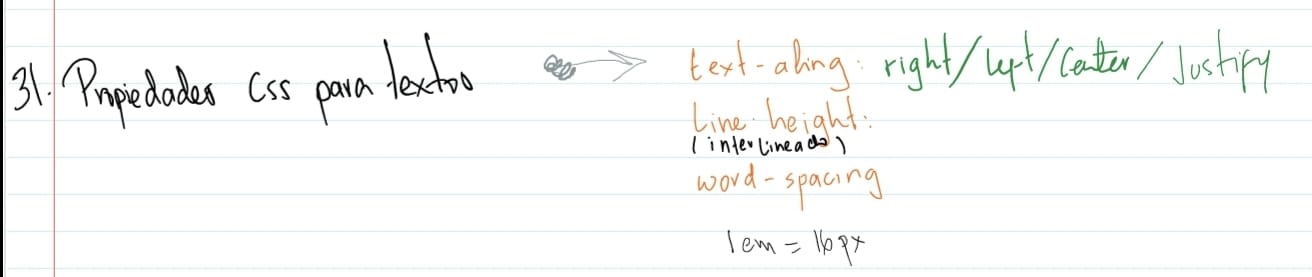 31. Propiedades Css para textos
text-aling: right/left/Center/Justify
Line-height:
(interlineado)
word-spacing
1em = 16px